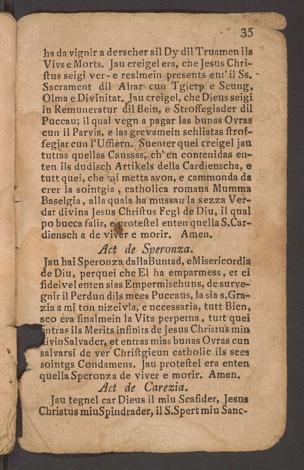 35
ha da vignir a derscher sil Dy dil Truamen ils
Vivs e Morts. Jau creigel era, che Jesus Chri-
stus seigi ver- e realmein presents ent'il Ss.
Sacrament dil Altar cun Tgierp e Seung,
Olma e Divinitat. Jau creigel, che Dieus seigi
in Remuneratur dil Bein, e Stroffegiader dil
Puccau; il qual vegn a pagar las bunas Ovras
cun il Parvis, e las grevamein schliatas strof-
fegiar cun l'Uffiern. Suenter quei creigel jau
tuttas quellas Caussas, ch' en contenidas en-
ten ils dudisch Artikels della Cardienscha, e
tutt quei, che mi metta avon, e cammonda da
crer la sointgia, catholica romana Mumma
Baselgia, alla quala ha mussau la sezza Ver-
dat divina Jesus Christus Fegl de Diu, il qual
po bucca falir, e protestel enten quella S. Car-
diensch a de viver e morir. Amen.
Act de Speronza.
Jau hai Speronza dalla Buntad, e Misericordia
de Diu, perquei che El ha emparmess, et ei
fideivel enten sias Empermischuns, de surve-
gnir il Perdun dils mees Puccaus, la sia s. Gra-
zia a mi ton nizeivla, e necessaria, tutt Bien,
sco era finalmein la Vita perpetna, tutt quei
entras ils Merits infinits de Jesus Christus miu
divin Salvader, et entras mias bunas Ovras cun
salvarsi de ver Christgieun catholic ils sees
sointgs Condamens. Jau protestel era enten
quella Speronza de viver e morir. Amen.
Act de Carezia.
Jau tegnel car Dieus il miu Scafider, Jesus
Christus miu Spindrader, il S. Spert miu Sanc-